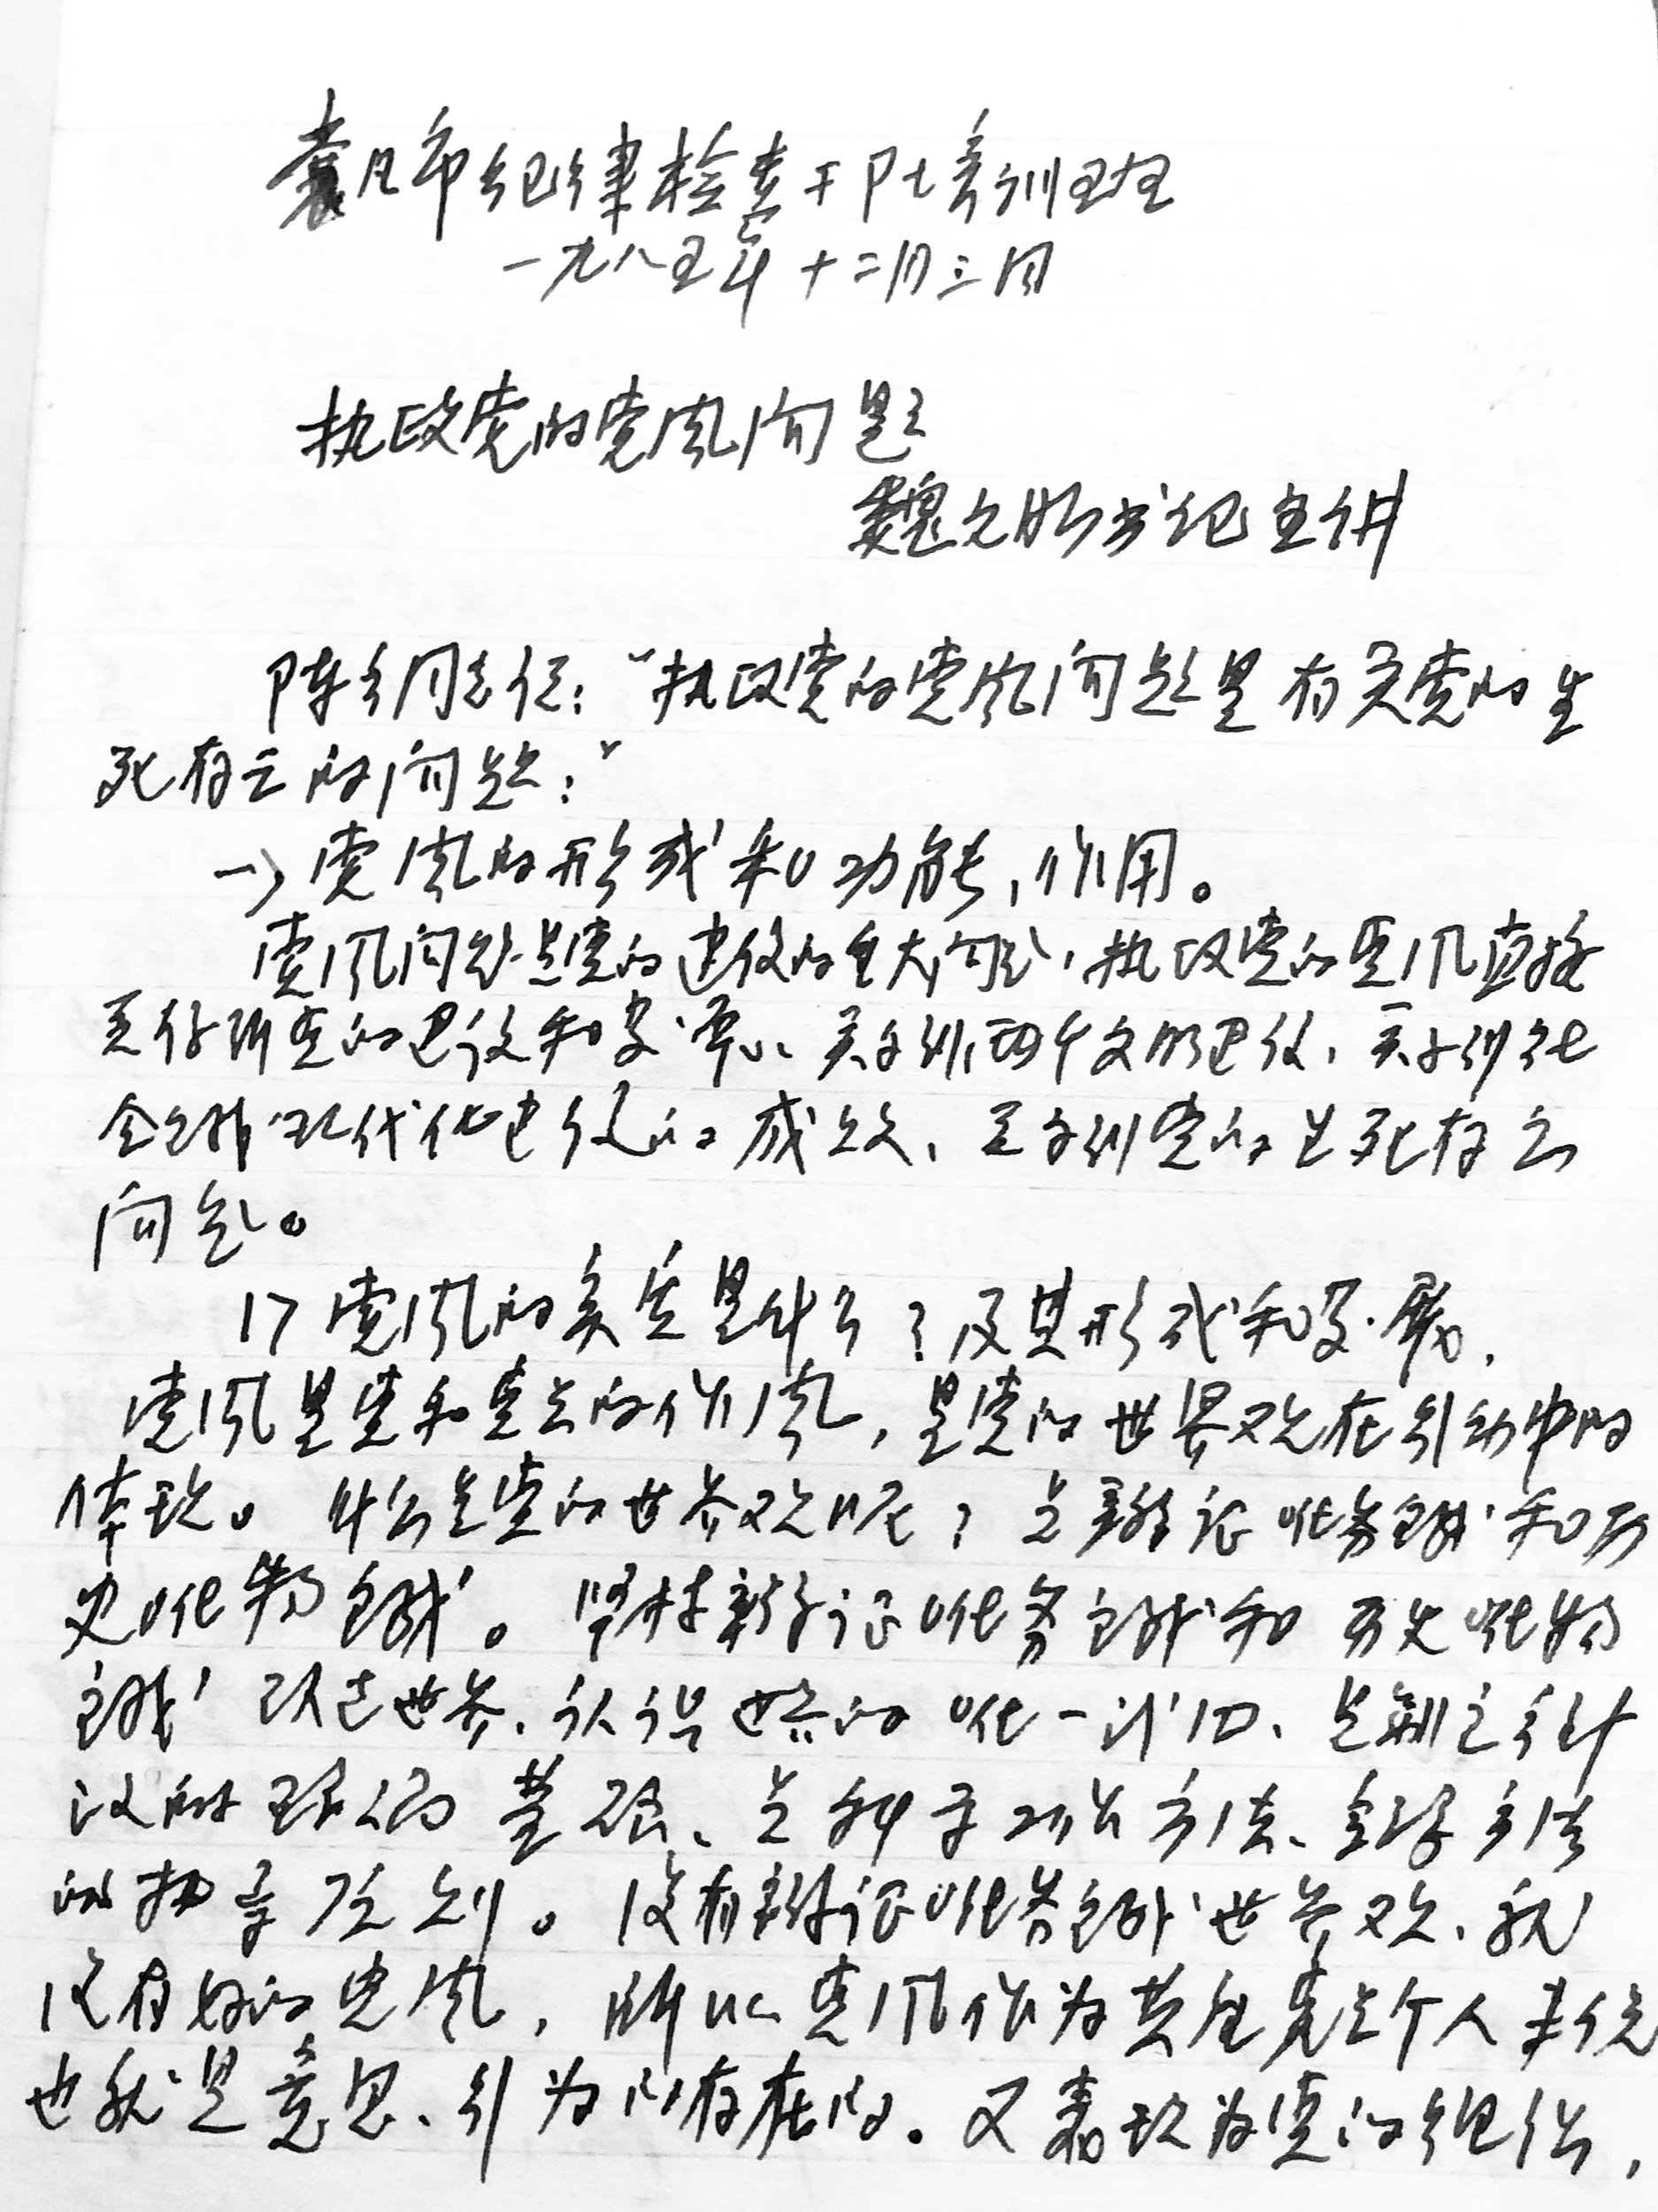 襄凡市纪律检查干部培训班
一九八五年十二月三日
执政党的党风问题
魏久明书记主讲
陈云同志说："执政党的党风问题是有关党的生
死存亡的问题："
一、党风的形成和功能,作用。
党风问题是党的建设的重大问题,执政党的党风直接
关系到党的建设和发展、关系到两个文明建设,关系到社
会主义现代化建设的成败,关系到党的生死存亡
问题。
1、党风的实质是什么?及其形成和发展,
党风是党和党员的作风,是党的世界观在行动中的
体现。什么是党的世界观呢?是辩证唯物主义和历
史唯物主义。坚持辩证唯物主义和历史唯物
主义改造世界,认识世界的唯一
的理论基础、是科学工作方法、领导方法
的指导原则。没有辩证唯物主义世界观,就
没有好的党风,所以党风作为共产党员个人来说
也就是意思、行为的存在的。又表现为党的组织,